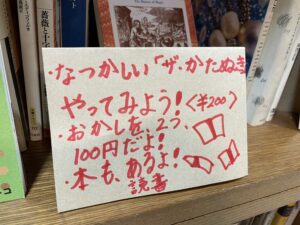 ・なつかしい「ザ・かたぬき
やってみよう!〈¥200〉
・おかしを、2つ、
100円だよ!
・本も、あるよ!
読書